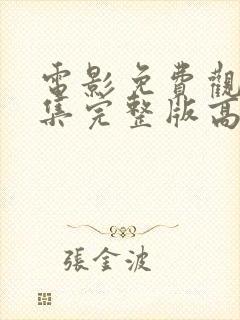 電影免費觀
集完整版高
張金波